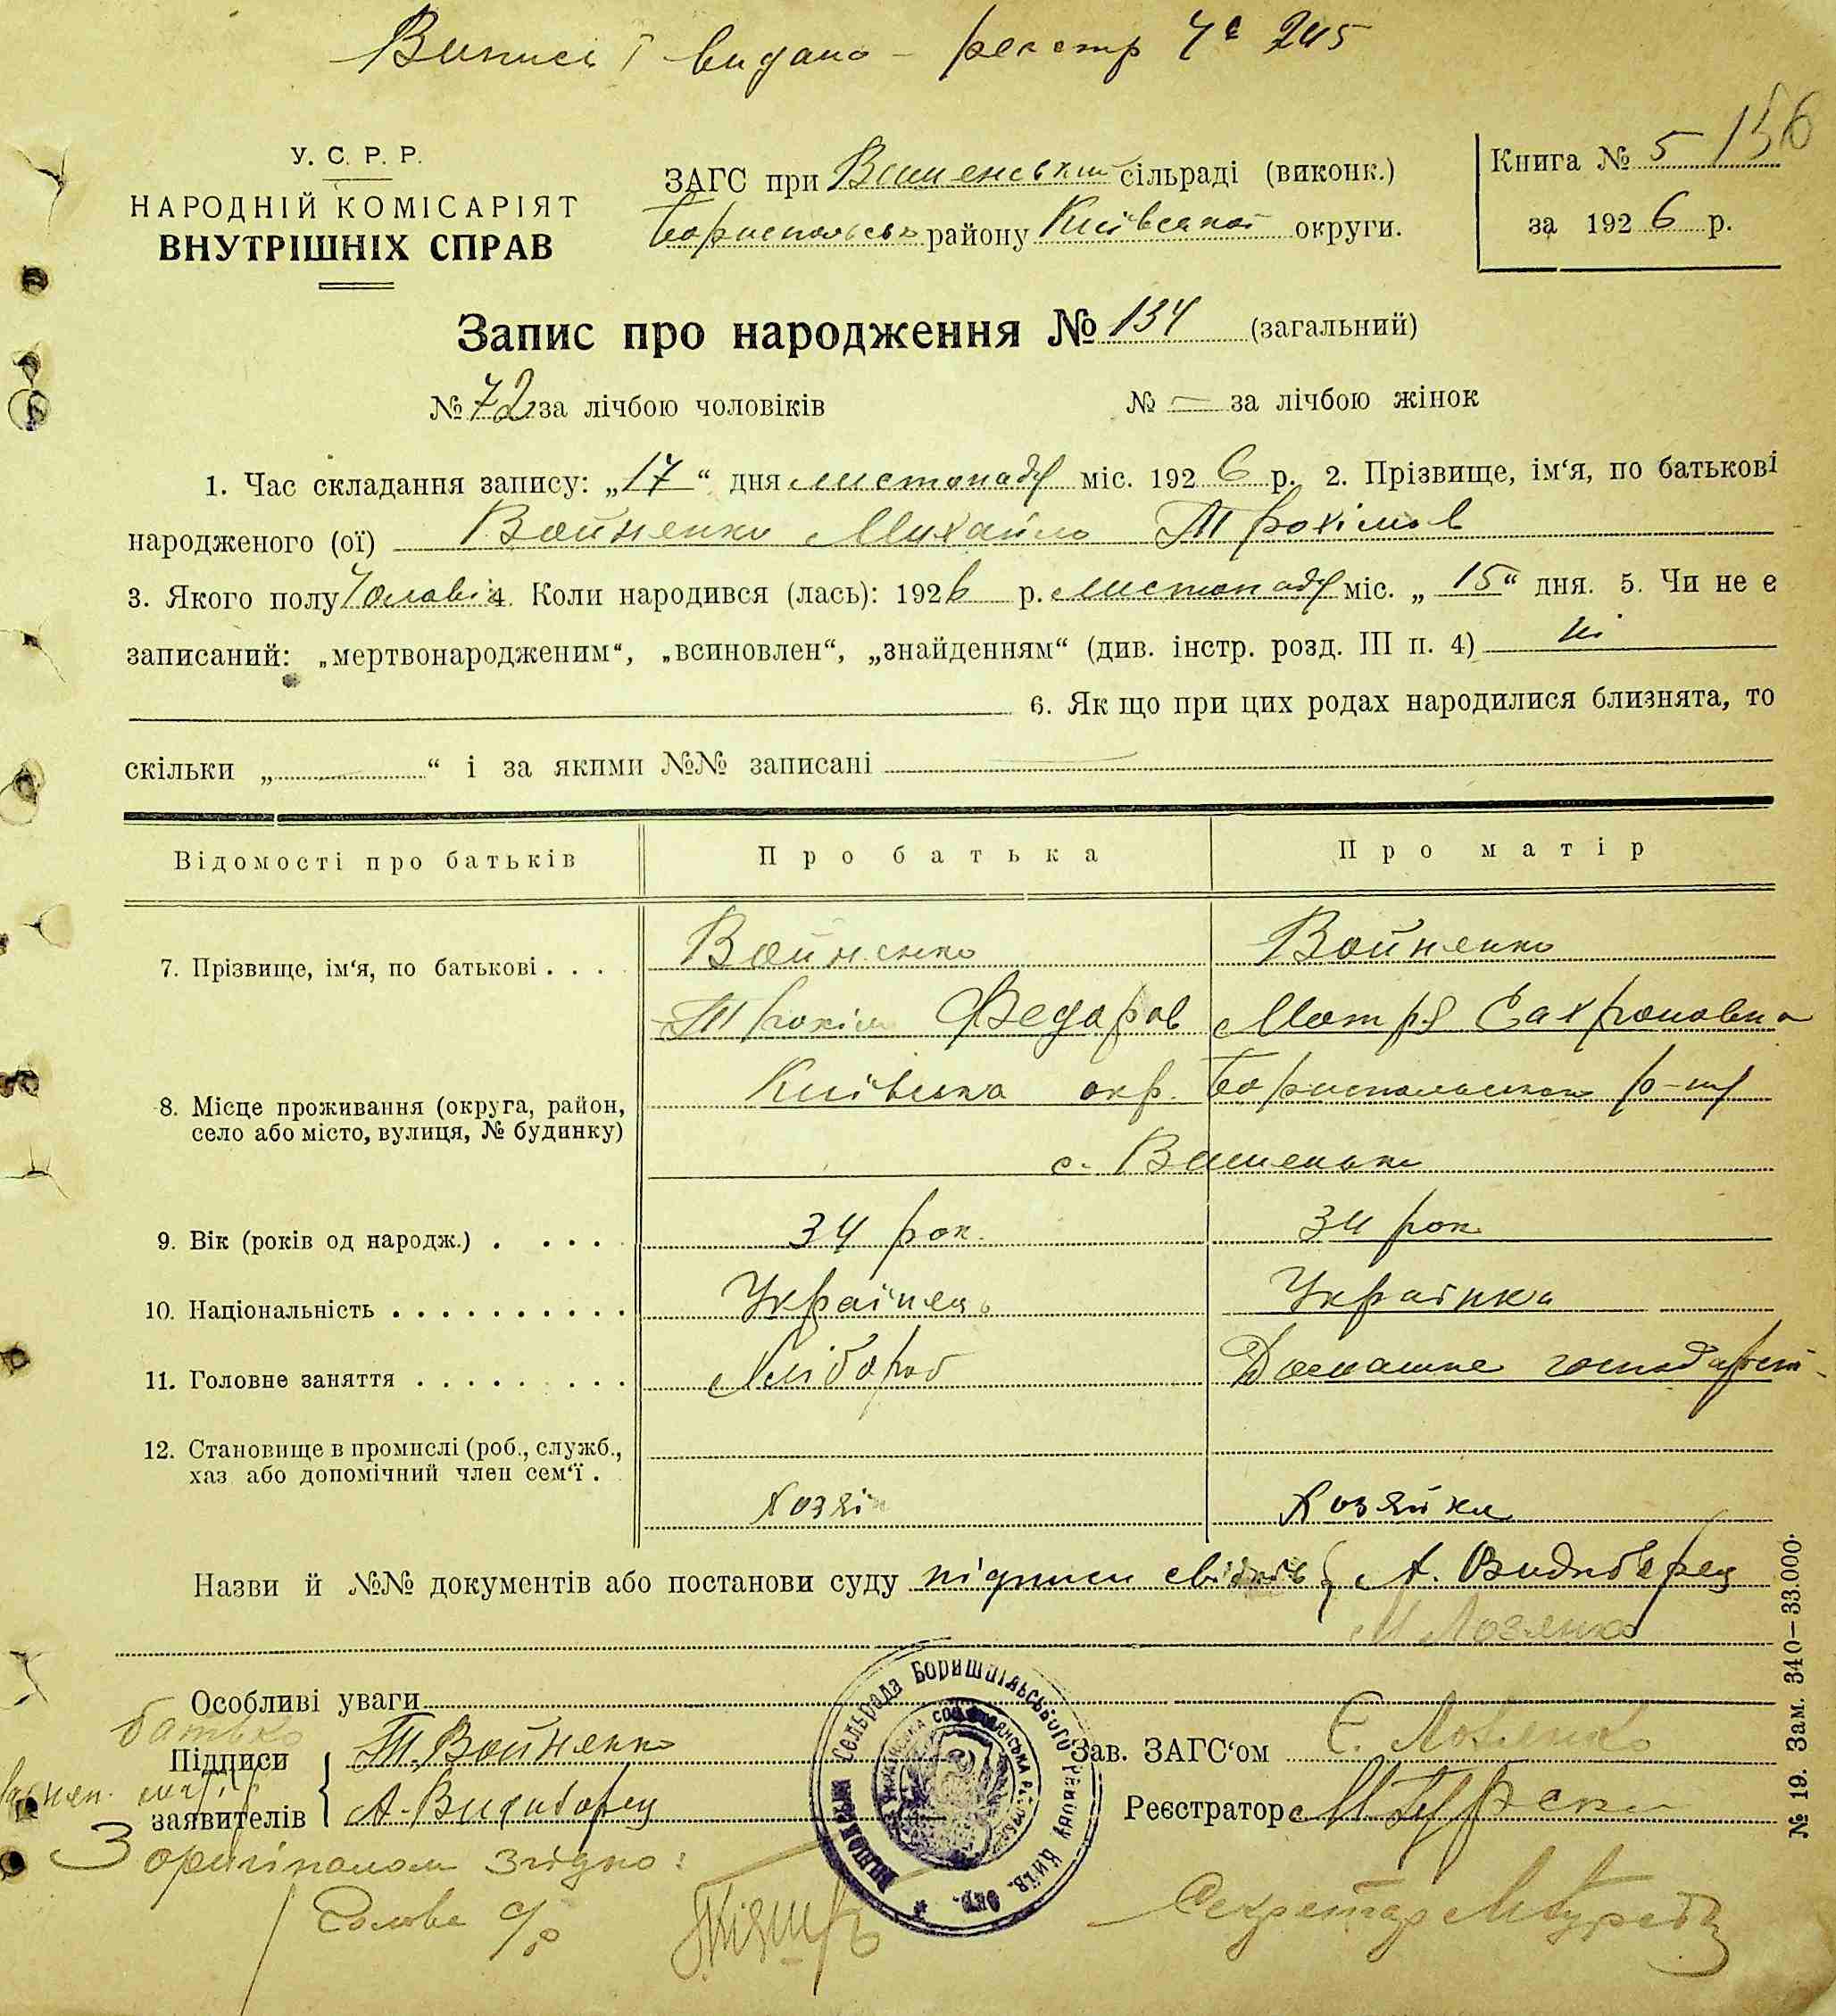 Виписі видано – реєстр № 245
156
У. С. Р. Р.
НАРОДНІЙ КОМІСАРІЯТ
ВНУТРІШНІХ СПРАВ
ЗАГС при Вишенській сільраді (виконк.)
Бориспольсько району Київської округи.
Книга № 5
за 1926 р.
Запис про народження № 134 (загальний)
№ 72 за лічбою чоловіків № — за лічбою жінок
1. Час складання запису: „17“ дня листопаду міс. 1926 р. 2. Прізвище, ім‘я, по батькові
народженого (ої) Войненко Михайло Трохімов
3. Якого полу Чоловіч 4. Коли народився (лась): 1926 р. листопаду міс. „15“ дня. 5. Чи не є
записаний: „мертвонародженим“, „всиновлен“, „знайденням“ (див. інстр. розд. III п. 4) ні
6. Як що при цих родах народилися близнята, то
скільки „ “ і за якими №№ записані
Відомості про батьків Про батька Про матір
7. Прізвище, ім‘я, по батькові . . . . Войненко Войненко
Трохім Федоров Мотря Сахроновна
8. Місце проживання (округа, район, село або місто, вулиця, № будинку) Київська окр. Бориспольського р-ну
с. Вишеньки
9. Вік (років од народж.) . . . . 34 рок. 34 рок
10. Національність . . . . . . . . . . Українець Українка
11. Головне заняття . . . . . . . . . Хлібороб Домашне господарст
12. Становище в промислі (роб., служб.,
хаз або допомічний член сем‘ї .
Хозяін Хозяйка
Назви й №№ документів або постанови суду підписи свідків А. Видиборец
М Лозенко
Особливі уваги
батько
Підписи Т. Войненко
заявителів А. Видиборец
Зав. ЗАГС‘ом Є. Лозенко
Реєстратор
З оригіналом згідно:
Голова с/р
Секретар
№ 19. Зам. 340—33.000.